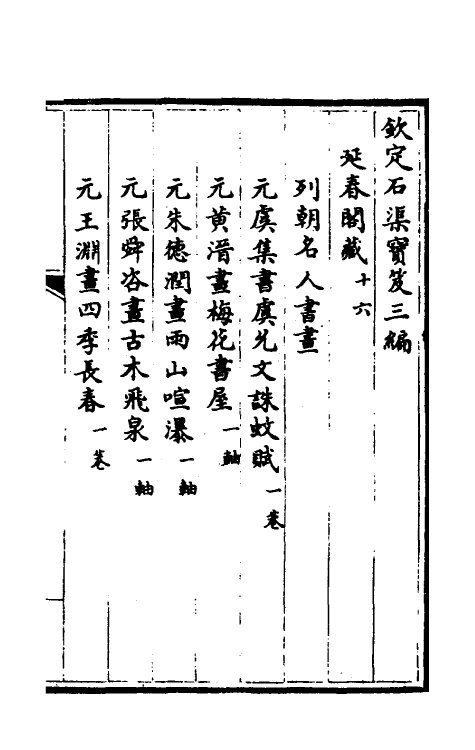 欽定石渠寶笈三編
延春閣藏十六
列朝名人書畫
元虞集書虞允文誅蚊賦一卷
元黃溍畫梅花書屋一軸
元朱德潤畫雨山喧瀑一軸
元張舜咨畫古木飛泉一軸
元王淵畫四季長春一卷